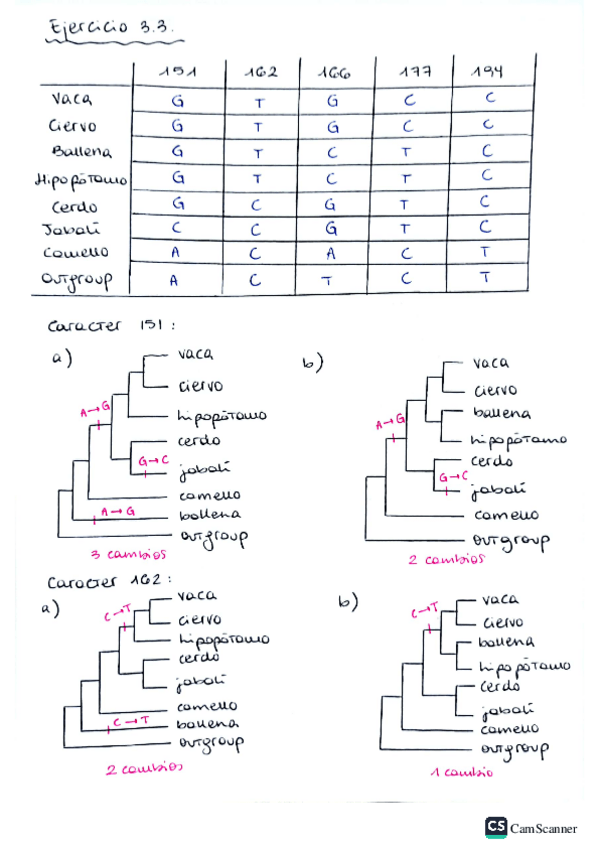 Ejercicio 3.3.
151 162 166 177 194
Vaca G T G C C
Ciervo G T G C C
Ballena G T C T C
Hipopótamo G T C T C
Cerdo G C G T C
Jabalí C C G T C
Camello A C A C T
Outgroup A C T C T
Caracter 151:
a)
vaca
ciervo
hipopótamo
cerdo
jabalí
camello
ballena
outgroup
A→G
G→C
A→G
3 cambios
b)
vaca
ciervo
ballena
hipopótamo
cerdo
jabalí
camello
outgroup
A→G
G→C
2 cambios
Caracter 162:
a)
vaca
ciervo
hipopótamo
cerdo
jabalí
camello
ballena
outgroup
C→T
C→T
2 cambios
b)
vaca
ciervo
ballena
hipopótamo
cerdo
jabalí
camello
outgroup
C→T
1 cambio
CS CamScanner